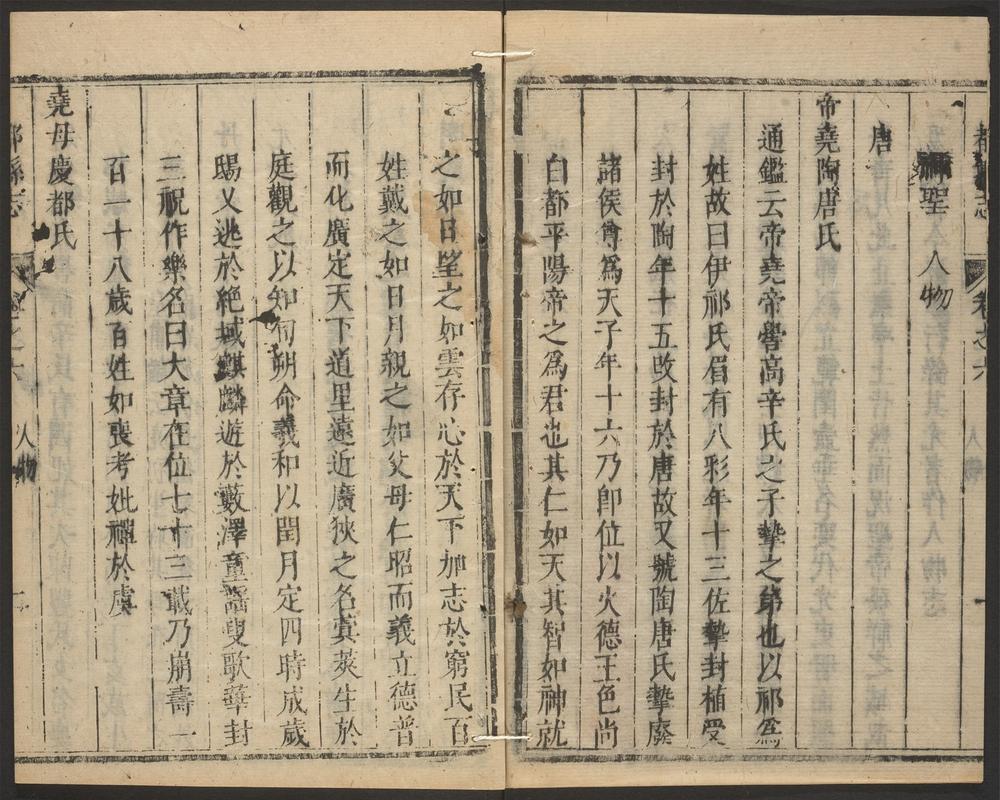 都縣志 卷之六
聖 人物
唐
帝堯陶唐氏
通鑑云帝堯帝嚳高辛氏之子摯之第也以祁爲
姓故曰伊祁氏眉有八彩年十三佐摯封植受
封於陶年十五改封於唐故又號陶唐氏摯廢
諸侯尊爲天子年十六乃卽位以火德王色尚
白都平陽帝之爲君也其仁如天其智如神就
之如日望之如雲存心於天下加志於窮民百
姓戴之如日月親之如父母仁昭而義立德普
而化廣定天下道里遠近廣狹之名蓂莢生於
庭觀之以知旬朔命羲和以閏月定四時成歲
又逃於絶域麒麟遊於藪澤童謠叟歌華封
三祝作樂名曰大章在位七十三載乃崩壽一
百一十八歲百姓如喪考妣禪於虞
堯母慶都氏
縣志 卷之六 人物